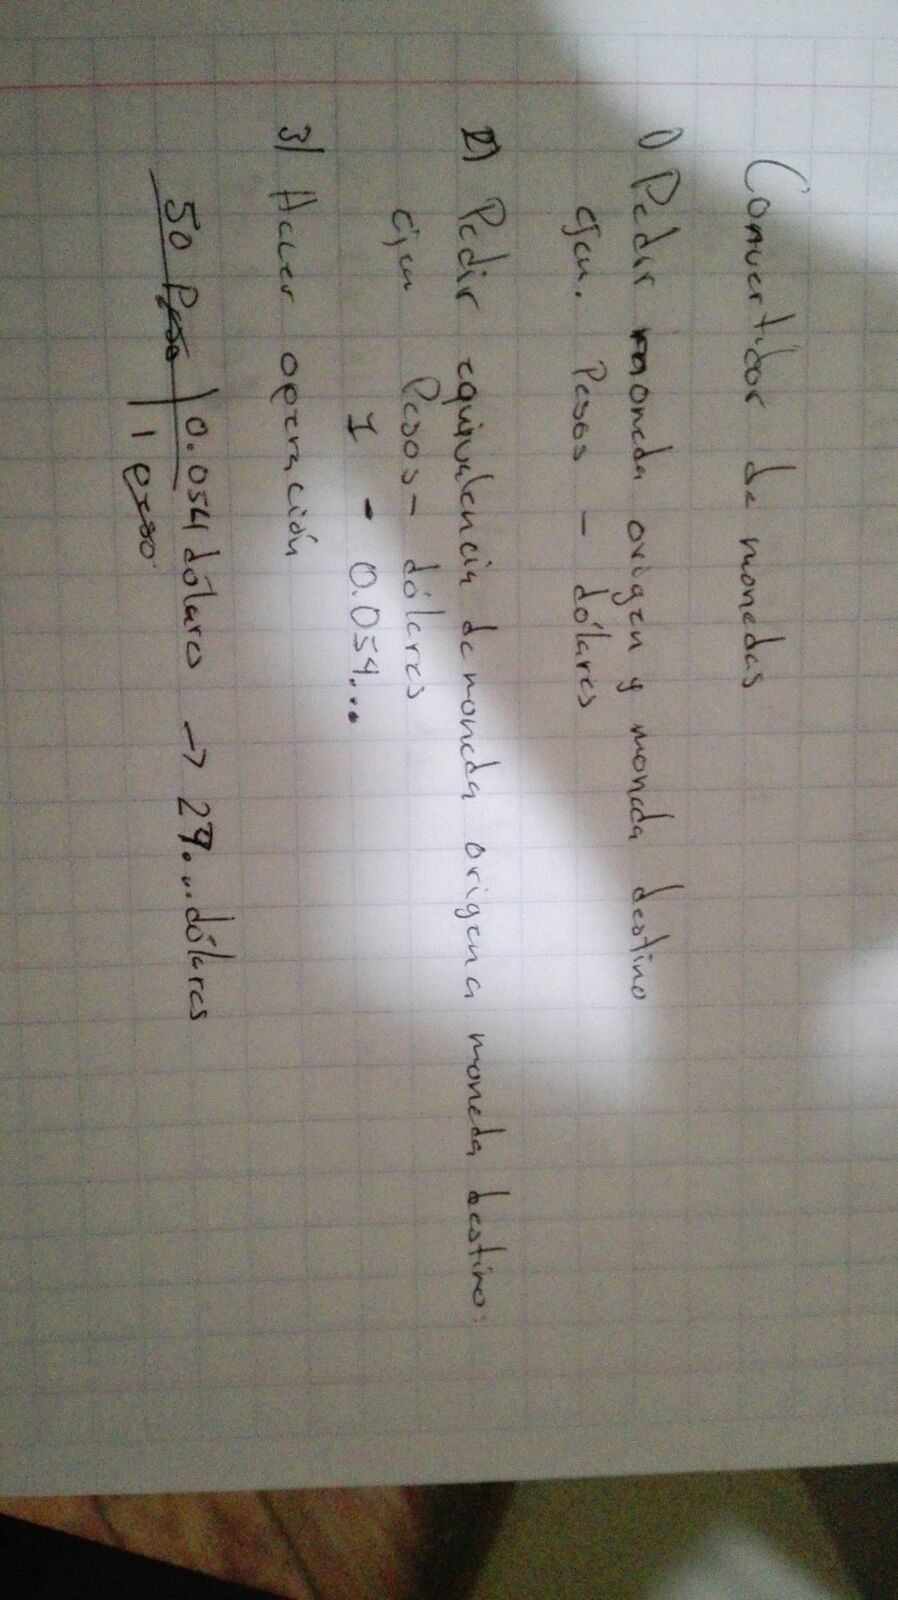 Convertidor de monedas
1) Pedir moneda origen y moneda destino
ejem. Pesos - dólares
2) Pedir equivalencia de moneda origen a moneda destino:
ejem Pesos - dólares
1 - 0.054...
3) Hacer operación
50 Peso | 0.054 dólares → 27... dólares
1 peso